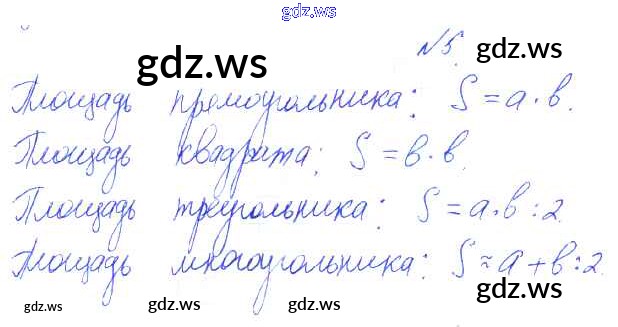 gdz.ws
№5. gdz.ws
gdz.ws
Площадь прямоугольника: S = a · b.
Площадь квадрата: S = b · b.
Площадь треугольника: S = a · b : 2.
Площадь многоугольника: S ≈ a + b : 2.
gdz.ws
gdz.ws gdz.ws gdz.ws